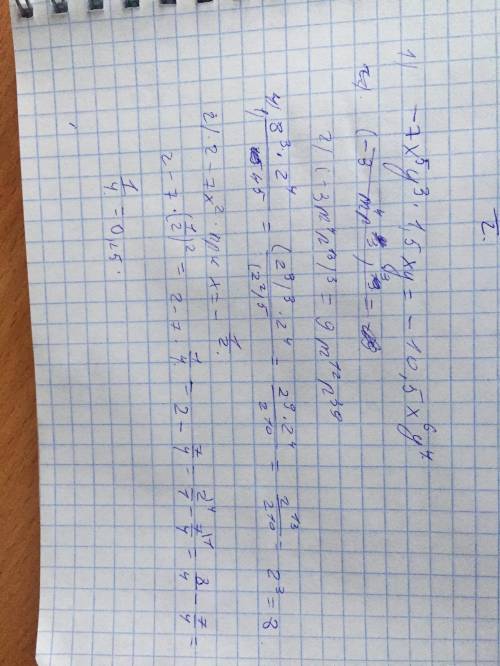 2.
1) -7x⁵y³ · 1,5xy = -10,5x⁶y⁴
2) (-3m⁴n¹³)³ = 9m¹²n³⁹
4) 1) 8³·2⁴/4⁵ = (2³)³·2⁴/(2²)⁵ = 2⁹·2⁴/2¹⁰ = 2¹³/2¹⁰ = 2³ = 8.
2) 2 - 7x² при x = -1/2.
2 - 7·(1/2)² = 2 - 7·1/4 = 2 - 7/4 = 2/1 - 7/4 = 8-7/4 =
1/4 = 0,25.